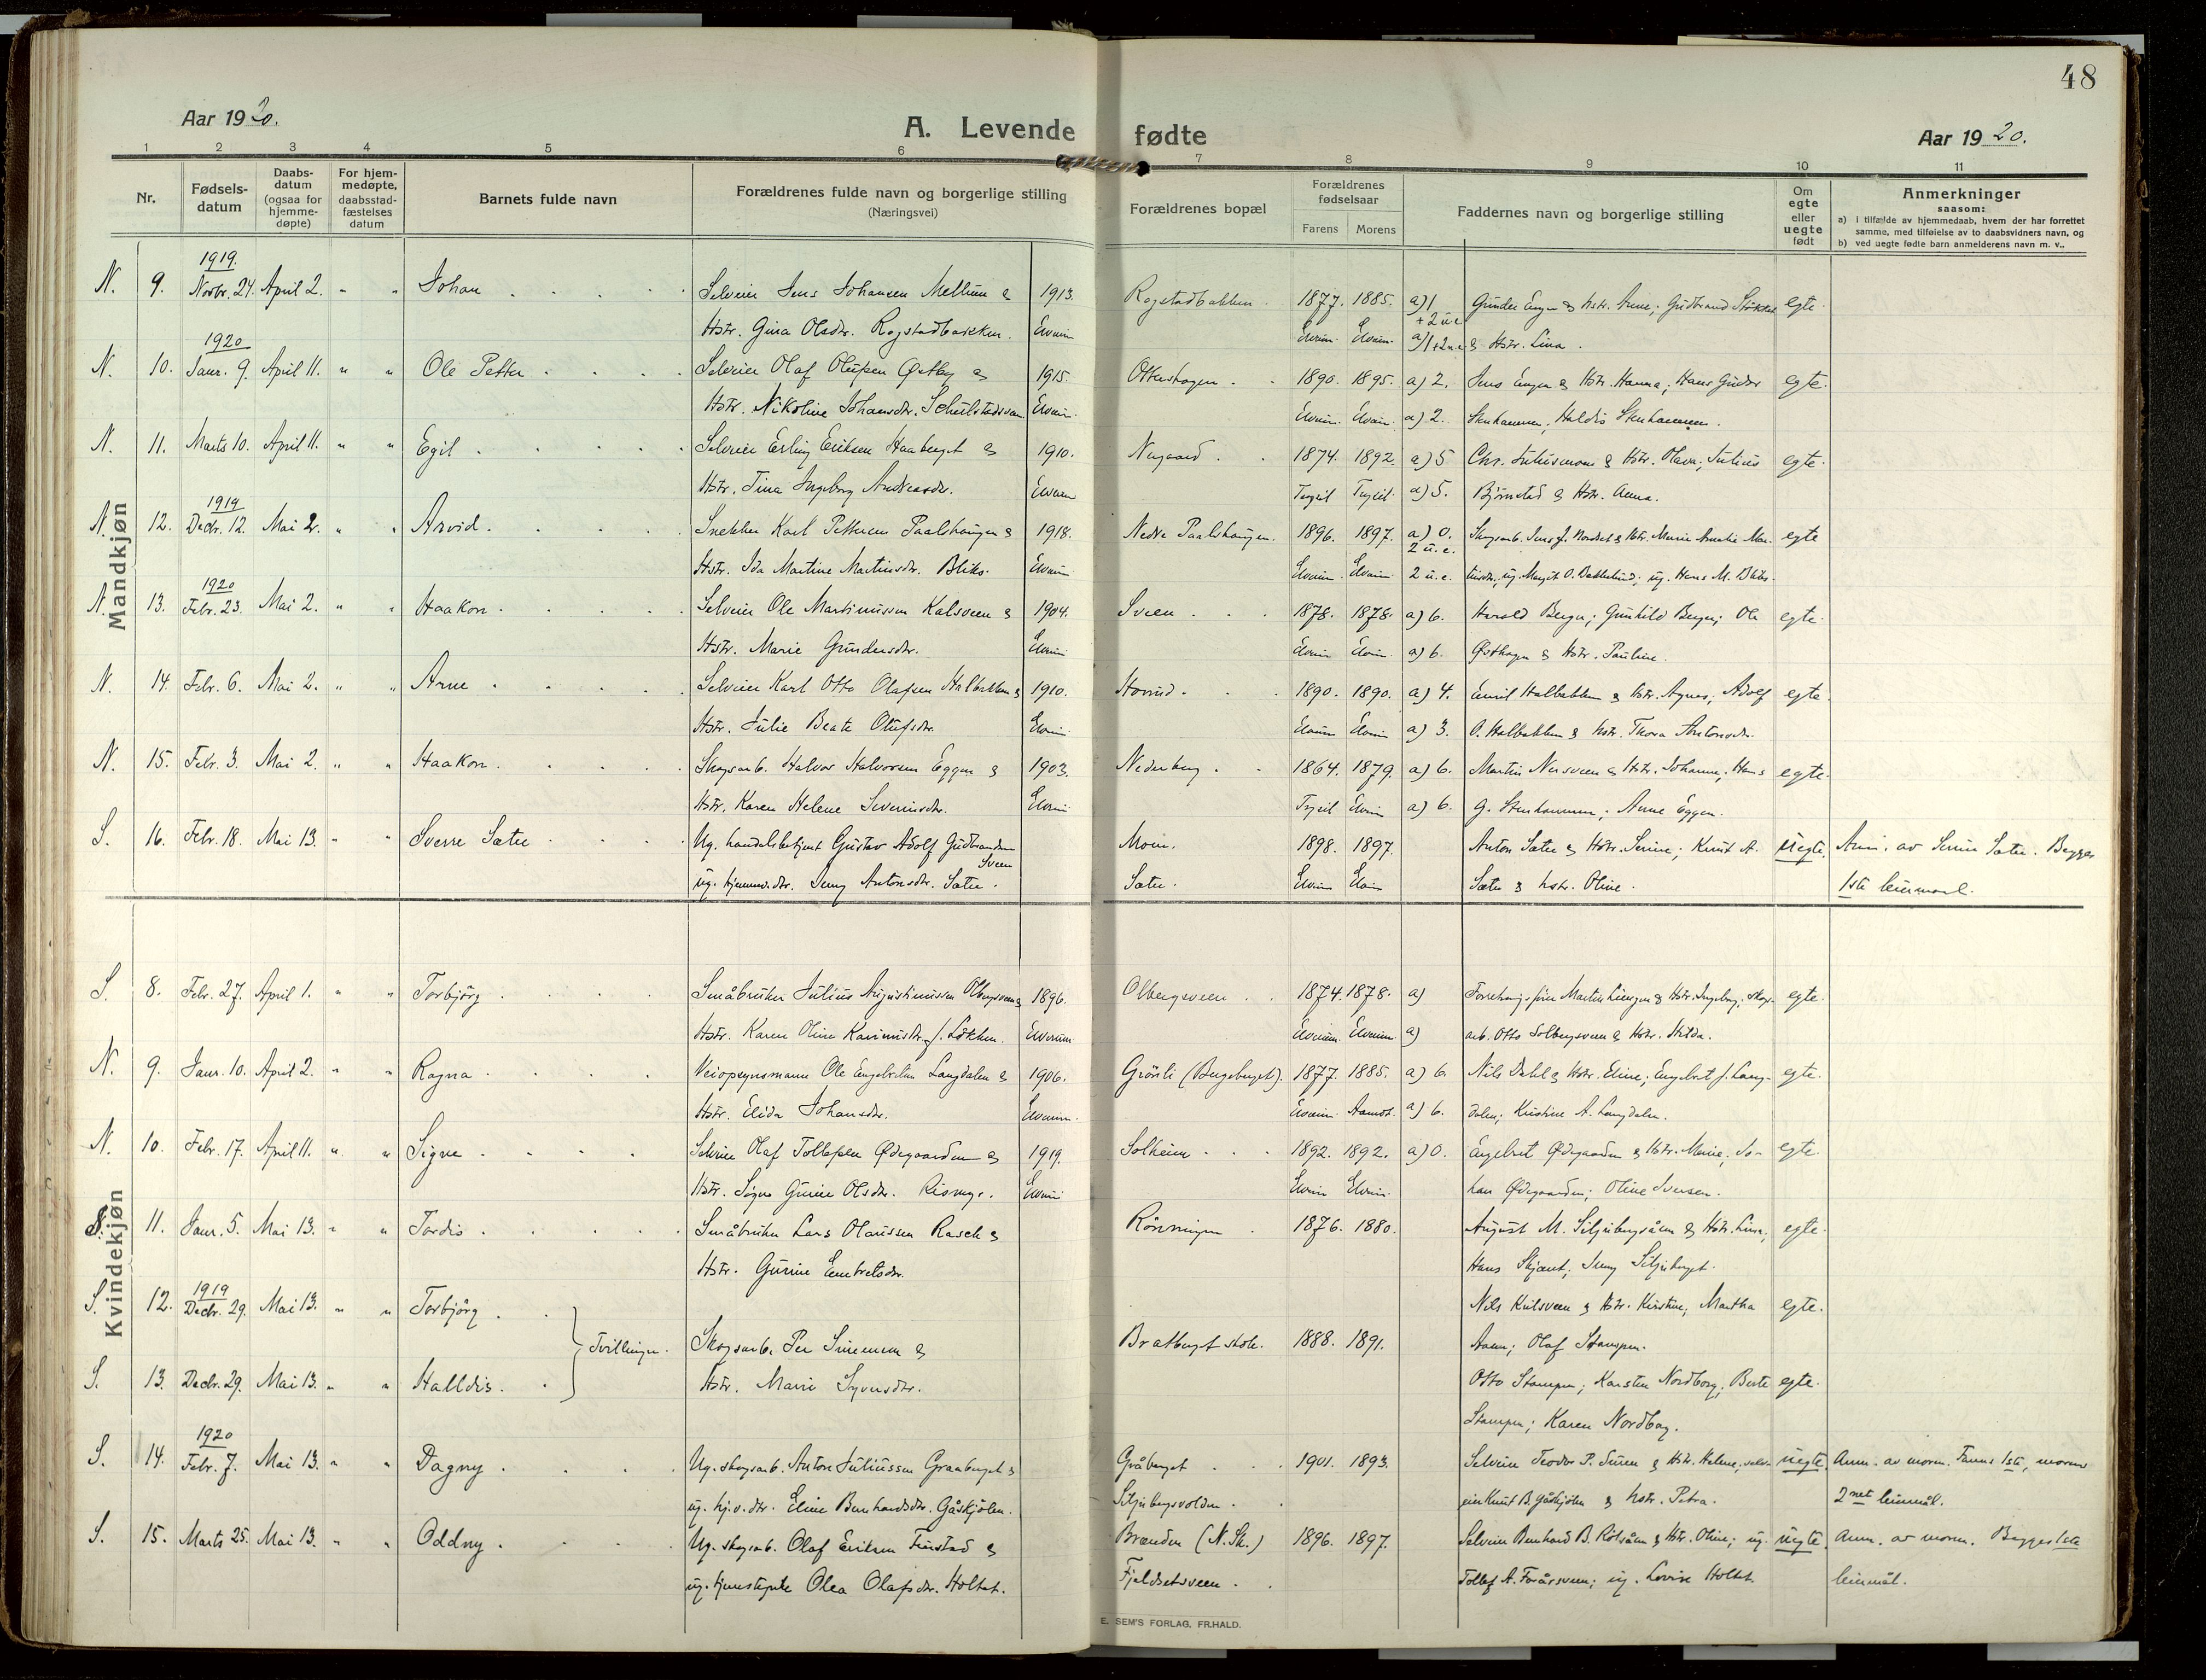 48
Aar 1920.
A. Levende fødte
Aar 1920.
1 2 3 4 5 6 7 8 9 10 11
Nr.
Fødsels-
datum
Daabs-
datum
(ogsaa for
hjemme-
døpte)
For hjem-
medøpte,
daabsstad-
fæstelses
datum
Barnets fulde navn
Forældrenes fulde navn og borgerlige stilling
(Næringsvei)
Forældrenes bopæl
Forældrenes
fødselsaar
Farens Morens
Faddernes navn og borgerlige stilling
Om
egte
eller
uegte
født
Anmerkninger
saasom:
a) i tilfælde av hjemmedaab, hvem der har forrettet
samme, med tilføielse av to daabsvidners navn, og
b) ved uegte fødte barn anmelderens navn m. v..
Mandkjøn
1919.
N. 9. Novbr. 24. April 2. " " Johan Selveier Jens Johansen Mellum & 1913. Rogstadbakken 1877. 1885. a) 1 + 2 u.e. Gunder Enger & hstr. Anne; Gudbrand egte.
Hstr. Gina Olsdr. Rogstadbakken. Elverum Elverum. Elverum. a) 1 + 2 u.e. & Hstr. Lina.
1920
N. 10. Janr. 9. April 11. " " Ole Petter Selveier Olaf Olufsen Østby & 1915. Ottershagen 1890. 1895. a) 2. Jens Enger & Hstr. Hanna; Hans Gunder egte.
Hstr. Nikoline Johansdr. Elverum. Elverum. Elverum. a) 2. Stenhammer; Haldis Stenhammer.
N. 11. Marts 10. April 11. " " Egil Selveier Erling Eriksen Haaberget & 1910. Nygaard 1874. 1892. a) 5 Chr. Juliusmoen & Hstr. Olava; Julius egte.
Hstr. Tina Ingeborg Andreasdr. Elverum Trysil Trysil. a) 5. Bjørnstad & Hstr. Anna.
1919
N. 12. Decbr. 12. Mai 2. " " Arvid Snekker Karl Pettersen Paalshaugen & 1918. Nedre Paalshaugen. 1896. 1897. a) 0. 2 u.e. Skogsarb. Jens J. Nordset & Hstr. Marie Amalie Mar- egte
Hstr. Ida Martine Martinsdr. Bliks. Elverum Elverum. Elverum. 2 u.e. tinsdr.; ug. Margit O. Bakkelund; ug. Hans M. Bliks.
1920
N. 13. Febr. 23. Mai 2. " " Haakon Selveier Ole Martinussen Kalsveen & 1904. Sveen 1878. 1878. a) 6. Harald Berger; Gunhild Berger; Ole egte.
Hstr. Marie Gundersdr. Elverum Elverum Elverum. a) 6. Østhagen & Hstr. Pauline.
N. 14. Febr. 6. Mai 2. " " Arne Selveier Karl Otto Olafsen Halbakken & 1910. Hovind. 1890. 1890. a) 4. Emil Halbakken & Hstr. Agnes; Adolf egte.
Hstr. Julie Beate Olufsdr. Elverum Elverum Elverum a) 3. O. Halbakken & hstr. Thora Antonsdr.
N. 15. Febr. 3. Mai 2. " " Haakon Skogsarb. Halvor Halvorsen Eggen & 1903. Nederberg 1864. 1879. a) 6. Martin Nersveen & Hstr. Johanne; Hans egte.
Hstr. Karen Helene Severinsdr. Elverum Trysil Elverum a) 6. G. Stenhammer; Anne Eggen.
S. 16. Febr. 18. Mai 13. " " Sverre Sæter Ug. handelsbetjent Gustav Adolf Gudbrandsen Sveen Moen. 1898. 1897. Anton Sæter & Hstr. Serine; Knut A. uegte. Anm. av Serine Sæter. Begges
ug. hjemmev. dtr. Jenny Antonsdr. Sæter. Sæter. Elverum Elverum Sæter & hstr. Oline. 1ste leiermaal.
Kvindekjøn
S. 8. Febr. 27. April 1. " " Torbjörg Småbruker Julius Augustinussen Olbergsveen & 1896. Olbergsveen 1874. 1878. a) Martin & Hstr. Ingeborg; skogs- egte.
Hstr. Karen Oline f. Løkken. Elverum Elverum. Elverum. a) arb. Otto Solbergsveen & Hstr. Hilda.
N. 9. Janr. 10. April 2. " " Ragna Veiopsynsmann Ole Engebretsen Langdalen & 1906. Grönli (Bergeberget). 1877. 1885. a) 6. Nils Dahl & Hstr. Eline; Engebret J. Lang- egte.
Hstr. Elida Johansdr. Elverum. Elverum. Aamot. a) 6. dalen; Kristine A. Langdalen.
N. 10. Febr. 17. April 11. " " Signe Selveier Olaf Tollefsen Ødegaarden & 1919. Solheim 1892. 1892. a) 0. Engebret Ødegaarden & Hstr. Marie; Jo- egte.
Hstr. Signe Gurine Olsdr. Rismyr. Elverum Elverum Elverum. han Ødegaarden; Oline Iversen.
S. 11. Janr. 5. Mai 13. " " Tordis Småbruker Lars Olaussen Rasch & Rönningen 1876. 1880. August M. Siljubergsåsen & Hstr. Lina; egte.
Hstr. Gurine Embretsdr. Hans Skjæret; Jenny Siljuberget.
1919
S. 12. Decbr. 29. Mai 13. " " Torbjörg Nils Kulsveen & Hstr. Kirstine; Martha egte.
Tvillinger. Skogsarb. Per Simensen & Bratberget skole. 1888. 1891. Aasen; Olaf Stampen.
S. 13. Decbr. 29. Mai 13. " " Halldis. Hstr. Marie Syversdtr. Otto Stampen; Karsten Nordborg; Berte egte.
Stampen; Karen Nordborg.
1920
S. 14. Febr. 7. Mai 13. " " Dagny Ug. skogsarb. Anton Juliussen Graaberget & Gråberget 1901. 1893. Selveier Teodor P. & Hstr. Helene; selv- uegte. Anm. av moren. Farens 1ste, morens
ug. hj.v. dtr. Eline Bernhardsdr. Gåskjölen. Siljubergsvolden eier Knut B. Gåskjölen & hstr. Petra. 2net leiermål.
S. 15. Marts 25. Mai 13. " " Oddny Ug. skogsarb. Olaf Eriksen Finstad & Brænden (N. Sk.) 1896. 1897. Selveier Bernhard B. Rötåsen & Hstr. Oline; ug. uegte. Anm. av moren. Begges 1ste
ug. tjenestepike Olea Olafsdr. Holtet. Fjeldsetsveen Tollef A. Forårsveen; ug. Lovise Holtet. leiermål.
E. SEM'S FORLAG, FR.HALD.